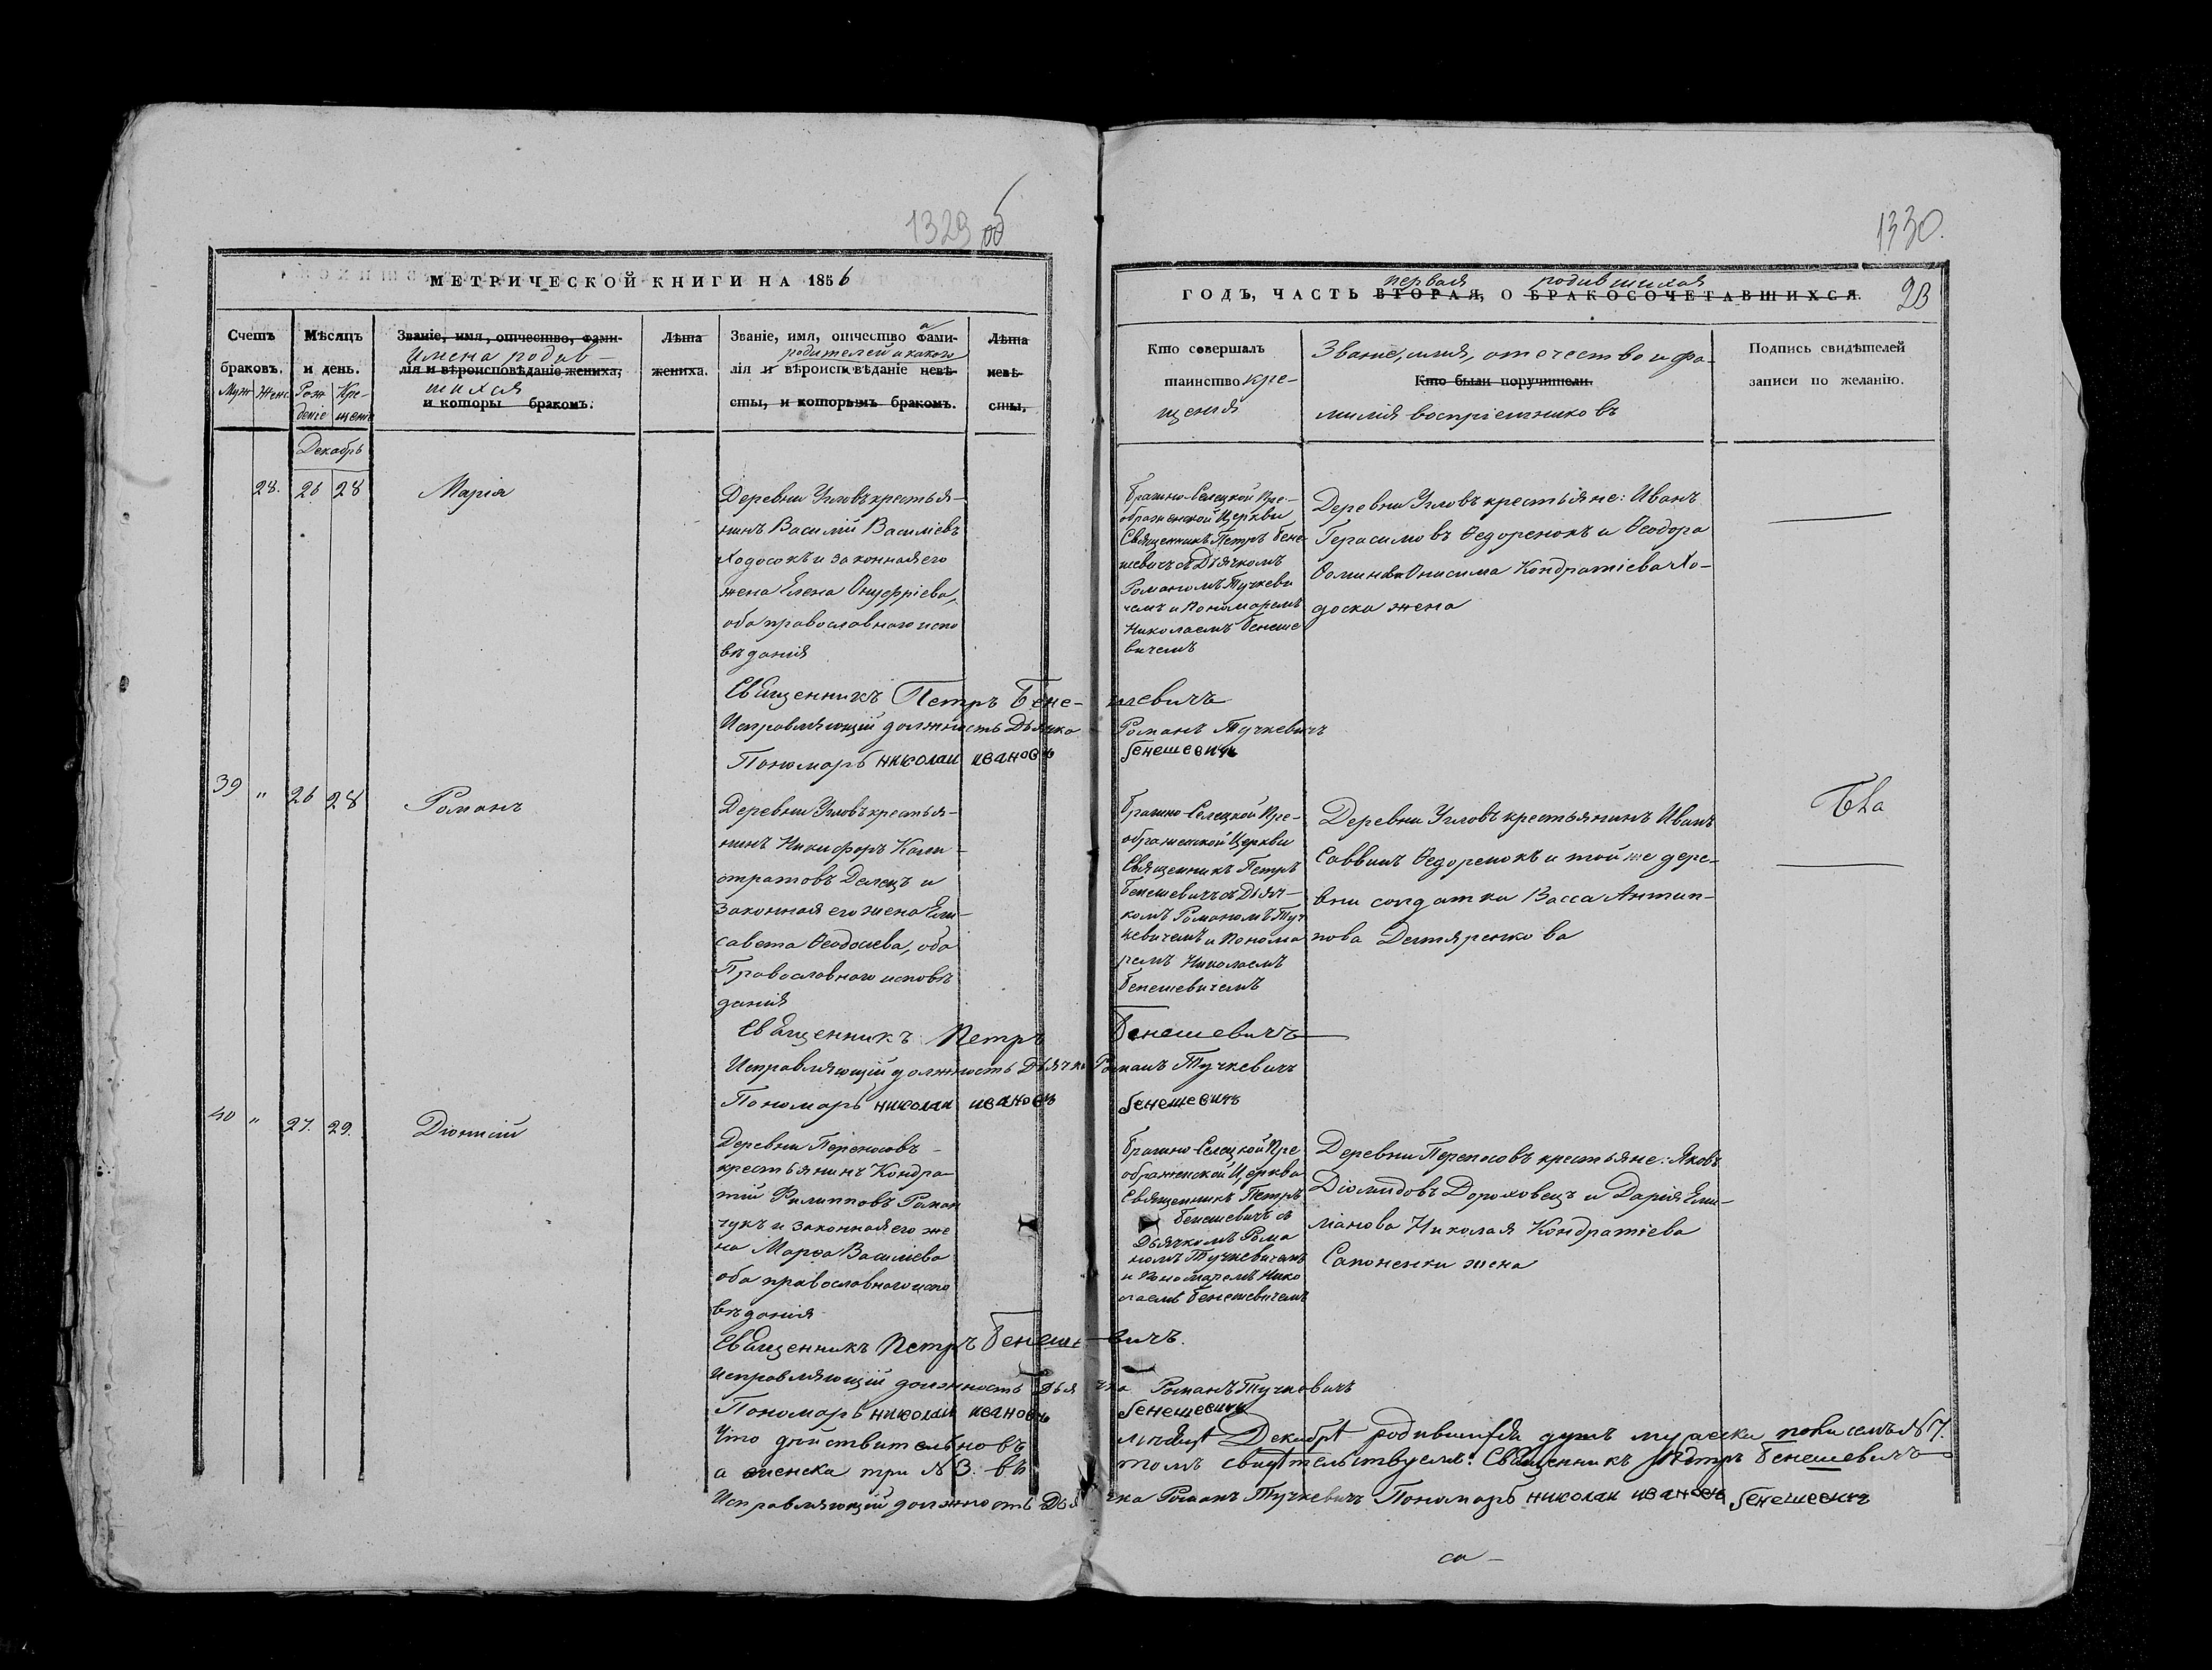 1329 об
МЕТРИЧЕСКОЙ КНИГИ НА 1856
Счетъ браковъ.
Муж Женс
Мѣсяцъ и день.
Рожденіе Крещеніе
Званіе, имя, отчество, фами-
Имена родив-
лія и вѣроисповѣданіе жениха,
шихся
и которы бракомъ.
Лѣта жениха.
Званіе, имя, отчество фами-
родителей и какого
лія и вѣроисповѣданіе невѣ-
сты, и которымъ бракомъ.
Лѣта невѣ-
сты,
Декабрь
28. 26 28 Марія
Деревни Угловъ крестья-
нинъ Василій Васильевъ
Ходосокъ и законная его
жена Елена Онуфріева,
оба православнаго испо
вѣданія
Священникъ Петръ Бене-
Исправляющій должность Дьячка
Пономарь николаи ивановъ
39 " 26 28 Романъ
Деревни Угловъ крестья-
нинъ Никифоръ Кали-
стратовъ Делецъ и
законная его жена Ели-
савета Ѳеодосіева, оба
Православнаго исповѣ
данія
Священникъ Петръ
Исправляющій должность Дьячка
Пономарь николаи ивановъ
40 " 27. 29. Діонисій
Деревни Переносовъ-
крестьянинъ Кондра-
тій Филипповъ Роман
чукъ и законная его же
на Марѳа Василіева
оба православнаго испо
вѣданія
Священникъ Петръ Бенеше-
Исправляющій должность Дья
Пономарь николаи ивановъ
Что дѣйствительно въ
а женска три № 3. въ
Исправляющій должность Дья
1330.
23
ГОДЪ, ЧАСТЬ ВТОРАЯ, О БРАКОСОЧЕТАВШИХСЯ.
первая родившихся
Кто совершалъ
таинство кре-
щенія
Званіе, имя, отечество и фа-
Кто были поручители.
милія воспріемниковъ
Подпись свидѣтелей
записи по желанію.
Брагино-Селецкой Пре-
ображенской Церкви
Священникъ Петръ Бене-
шевичъ съ Дьячкомъ
Романомъ Тучкеви
чемъ и Пономаремъ
Николаемъ Бенеше
вичемъ
Деревни Угловъ крестьяне: Иванъ
Герасимовъ Ѳедоренокъ и Ѳеодора
Ѳомина Онисима Кондратіева Хо-
доска жена
шевичъ
Романъ Тучкевичъ
бенешевичъ
Брагино-Селецкой Пре-
ображенской Церкви
Священникъ Петръ
Бенешевичъ съ Дьяч-
комъ Романомъ Туч
кевичемъ и Понома
ремъ Николаемъ
Бенешевичемъ
Деревни Угловъ крестьянинъ Иванъ
Саввинъ Ѳедоренокъ и той же дере-
вни солдатка Васса Антип-
пова Дегтяренкова
Бенешевичъ
Романъ Тучкевичъ
бенешевичъ
Брагино-Селецкой Пре
ображенской Церкви
Священникъ Петръ
Бенешевичъ съ
Дьячкомъ Рома
номъ Тучкевичемъ
и Пономаремъ Нико
лаемъ Бенешевичемъ
Деревни Переносовъ крестьяне: Яковъ
Діомидовъ Дороховецъ и Дарія Еми-
ліанова Николая Кондратіева
Сапоненки жена
вичъ.
чка Романъ Тучкевичъ
бенешевичъ
мѣсяцѣ Декабрѣ родившихся душъ мужеска № 7.
томъ свидѣтельствуемъ: Священникъ Петръ Бенешевичъ
чка Романъ Тучкевичъ Пономарь николаи ивановъ бенешевичъ
са-